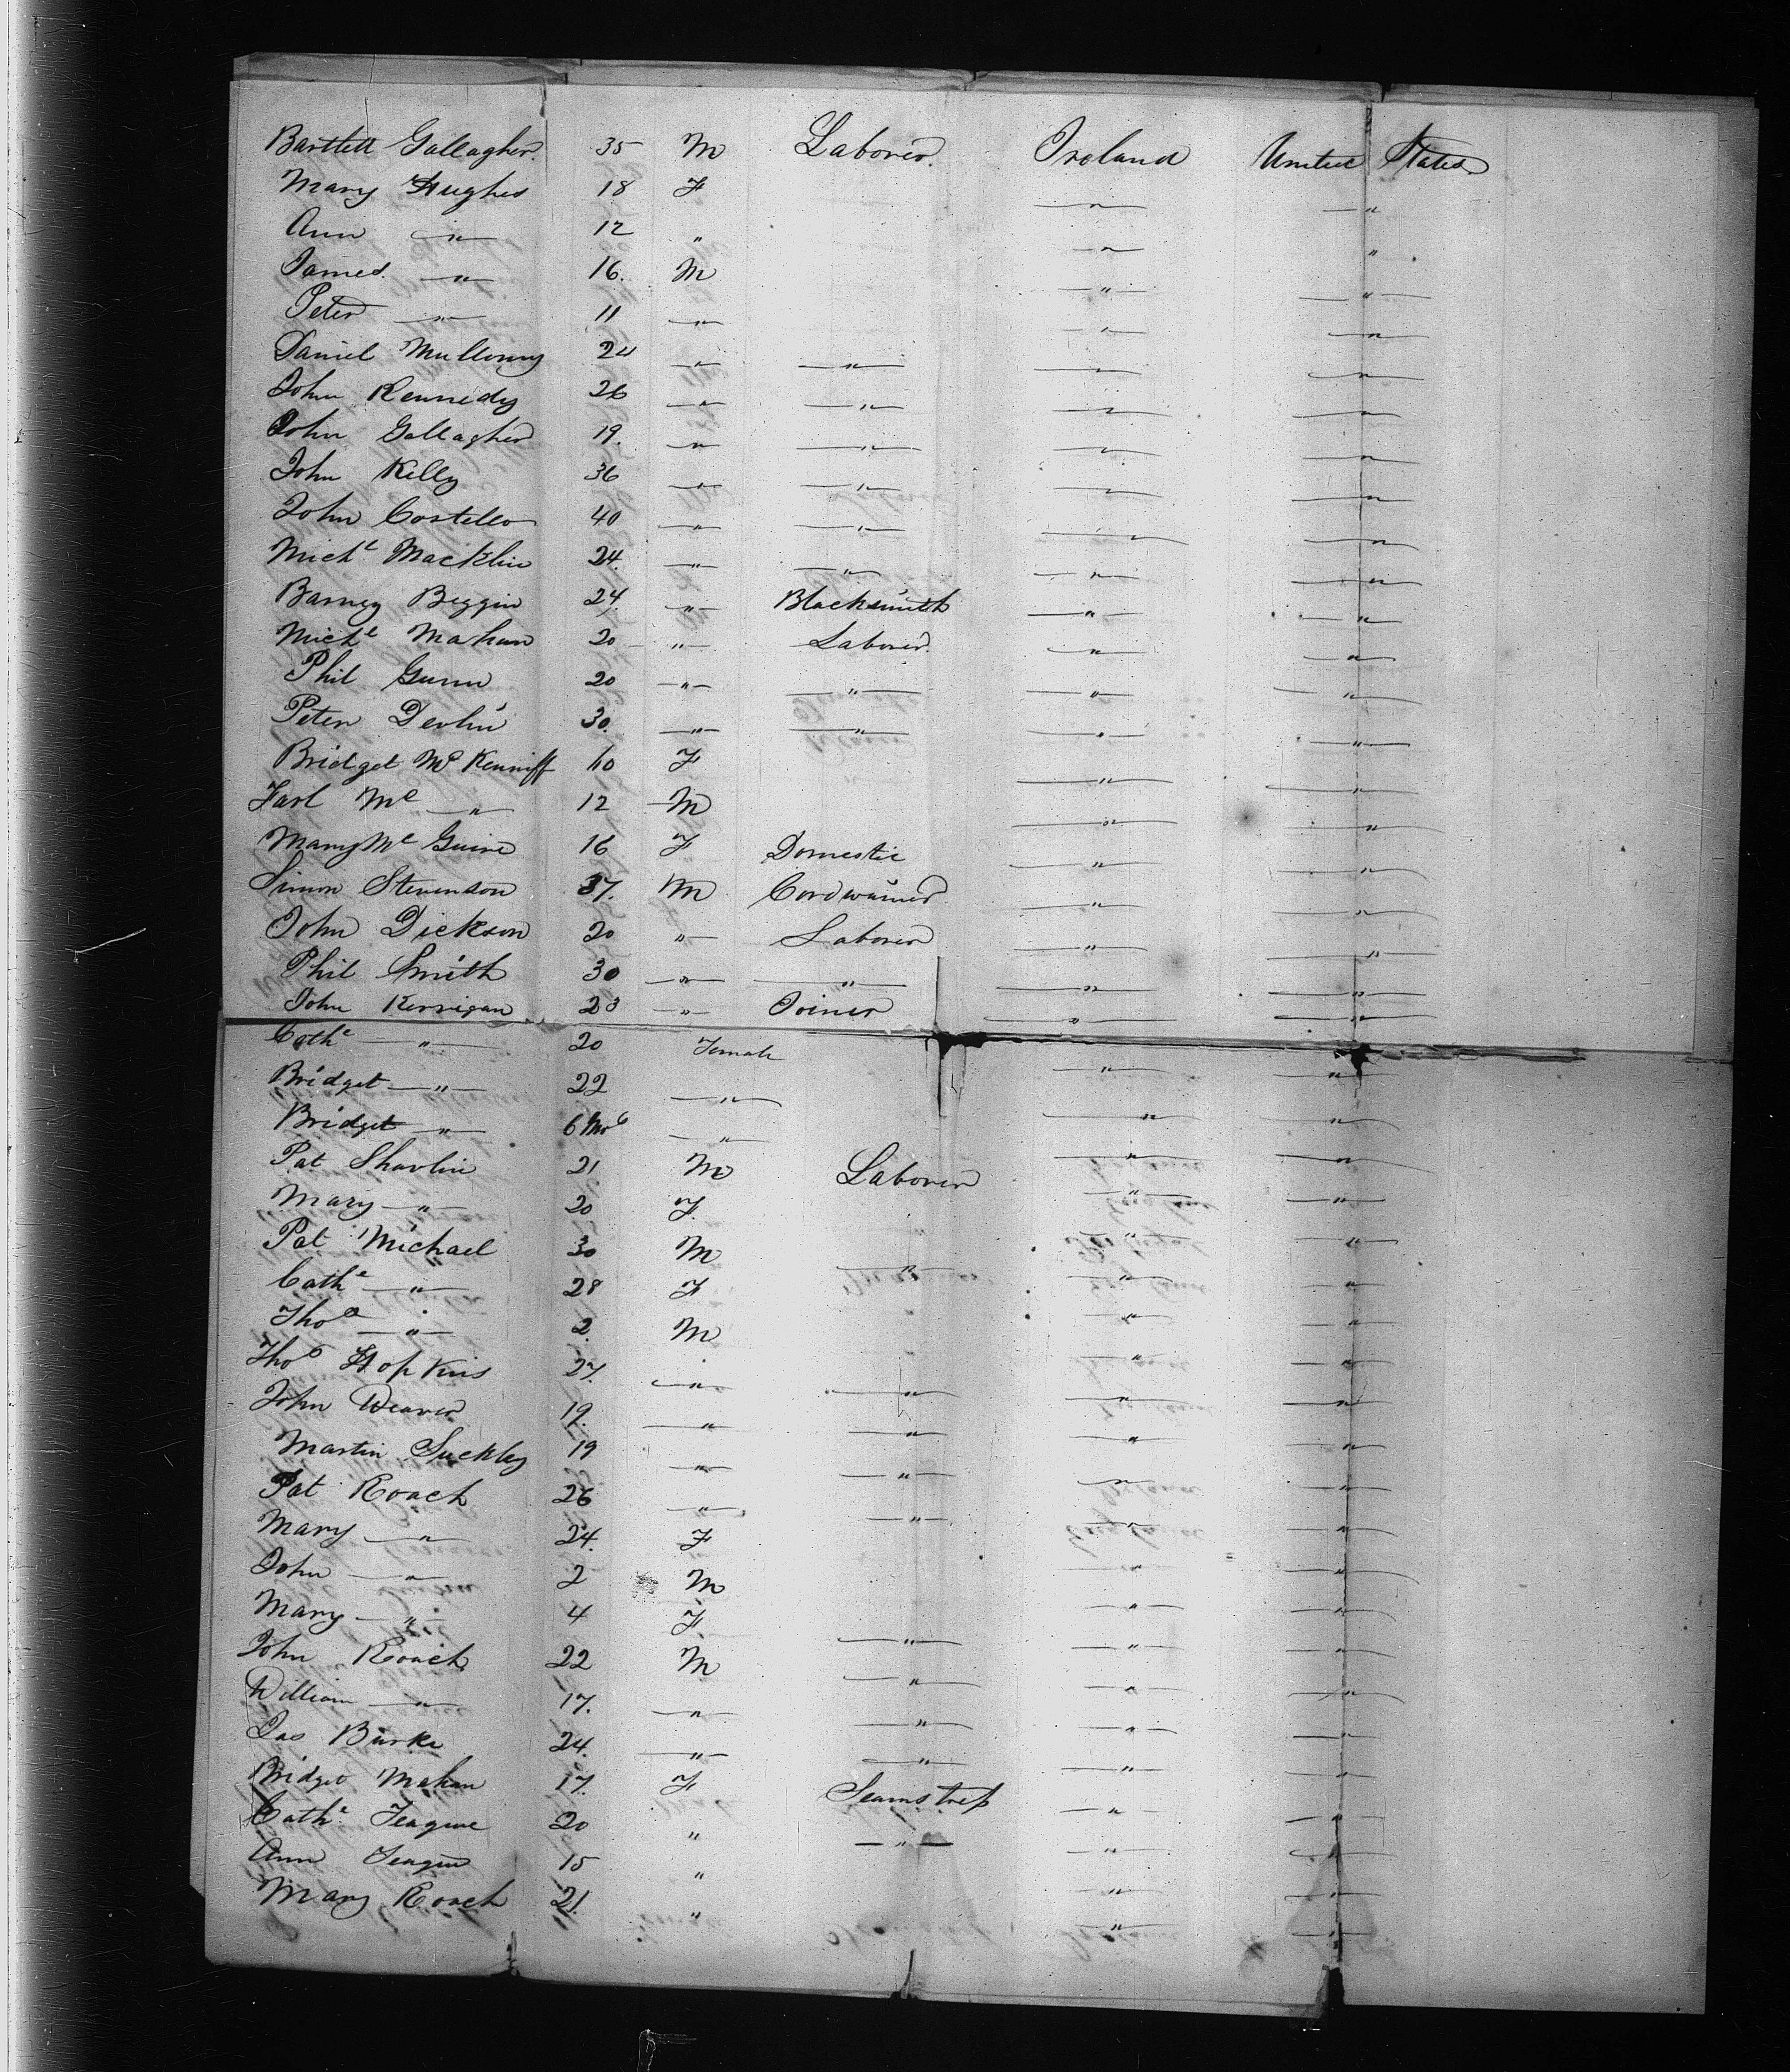 Bartlett Gallagher. 35 M Laborer. Ireland United States
Mary Hughes 18 F " "
Ann " 12 " " "
James. " 16. M " "
Peter " 11 " " "
Daniel Mullowny 24 " " " "
John Kennedy 26 " " " "
John Gallagher 19. " " " "
John Kelly 36 " " " "
John Costello 40 " " " "
Michl Macklin 24. " " " "
Barney Beggin 24. " Blacksmith " "
Michl Mahan 20 " Laborer. " "
Phil Gunn 20 " " " "
Peter Devlin 30. " " " "
Bridget Mc Kenniff F " "
Farl Mc " 12 M " "
Mary Mc Guire 16 F Domestic " "
Simon Stevenson 37. M Cordwainer " "
John Dickson 20 " Laborer " "
Phil Smith 30 " " " "
John Kerrigan 23 " Joiner " "
Cathe " 20 Female " "
Bridget " 22 " " "
Bridget " 6 Mos " " "
Pat Shavlin 21 M Laborer " "
Mary " 20 F. " "
Pat Michael 30 M " " "
Cathe " 28 F " "
Thos " 2. M " "
Thos Hopkins 27. " " " "
John Weaver 19. " " " "
Martin Suckley 19 " " " "
Pat Roach 26 " " " "
Mary " 24. F " "
John " 2 M " "
Mary " 4 F " "
John Roach 22 M " " "
William " 17. " " " "
Jas Burke 24. " " " "
Bridget Mahan 17. F Seamstress " "
Cathe Teague 20 " " " "
Ann Teague 15 " " "
Mary Roach 21. " " "